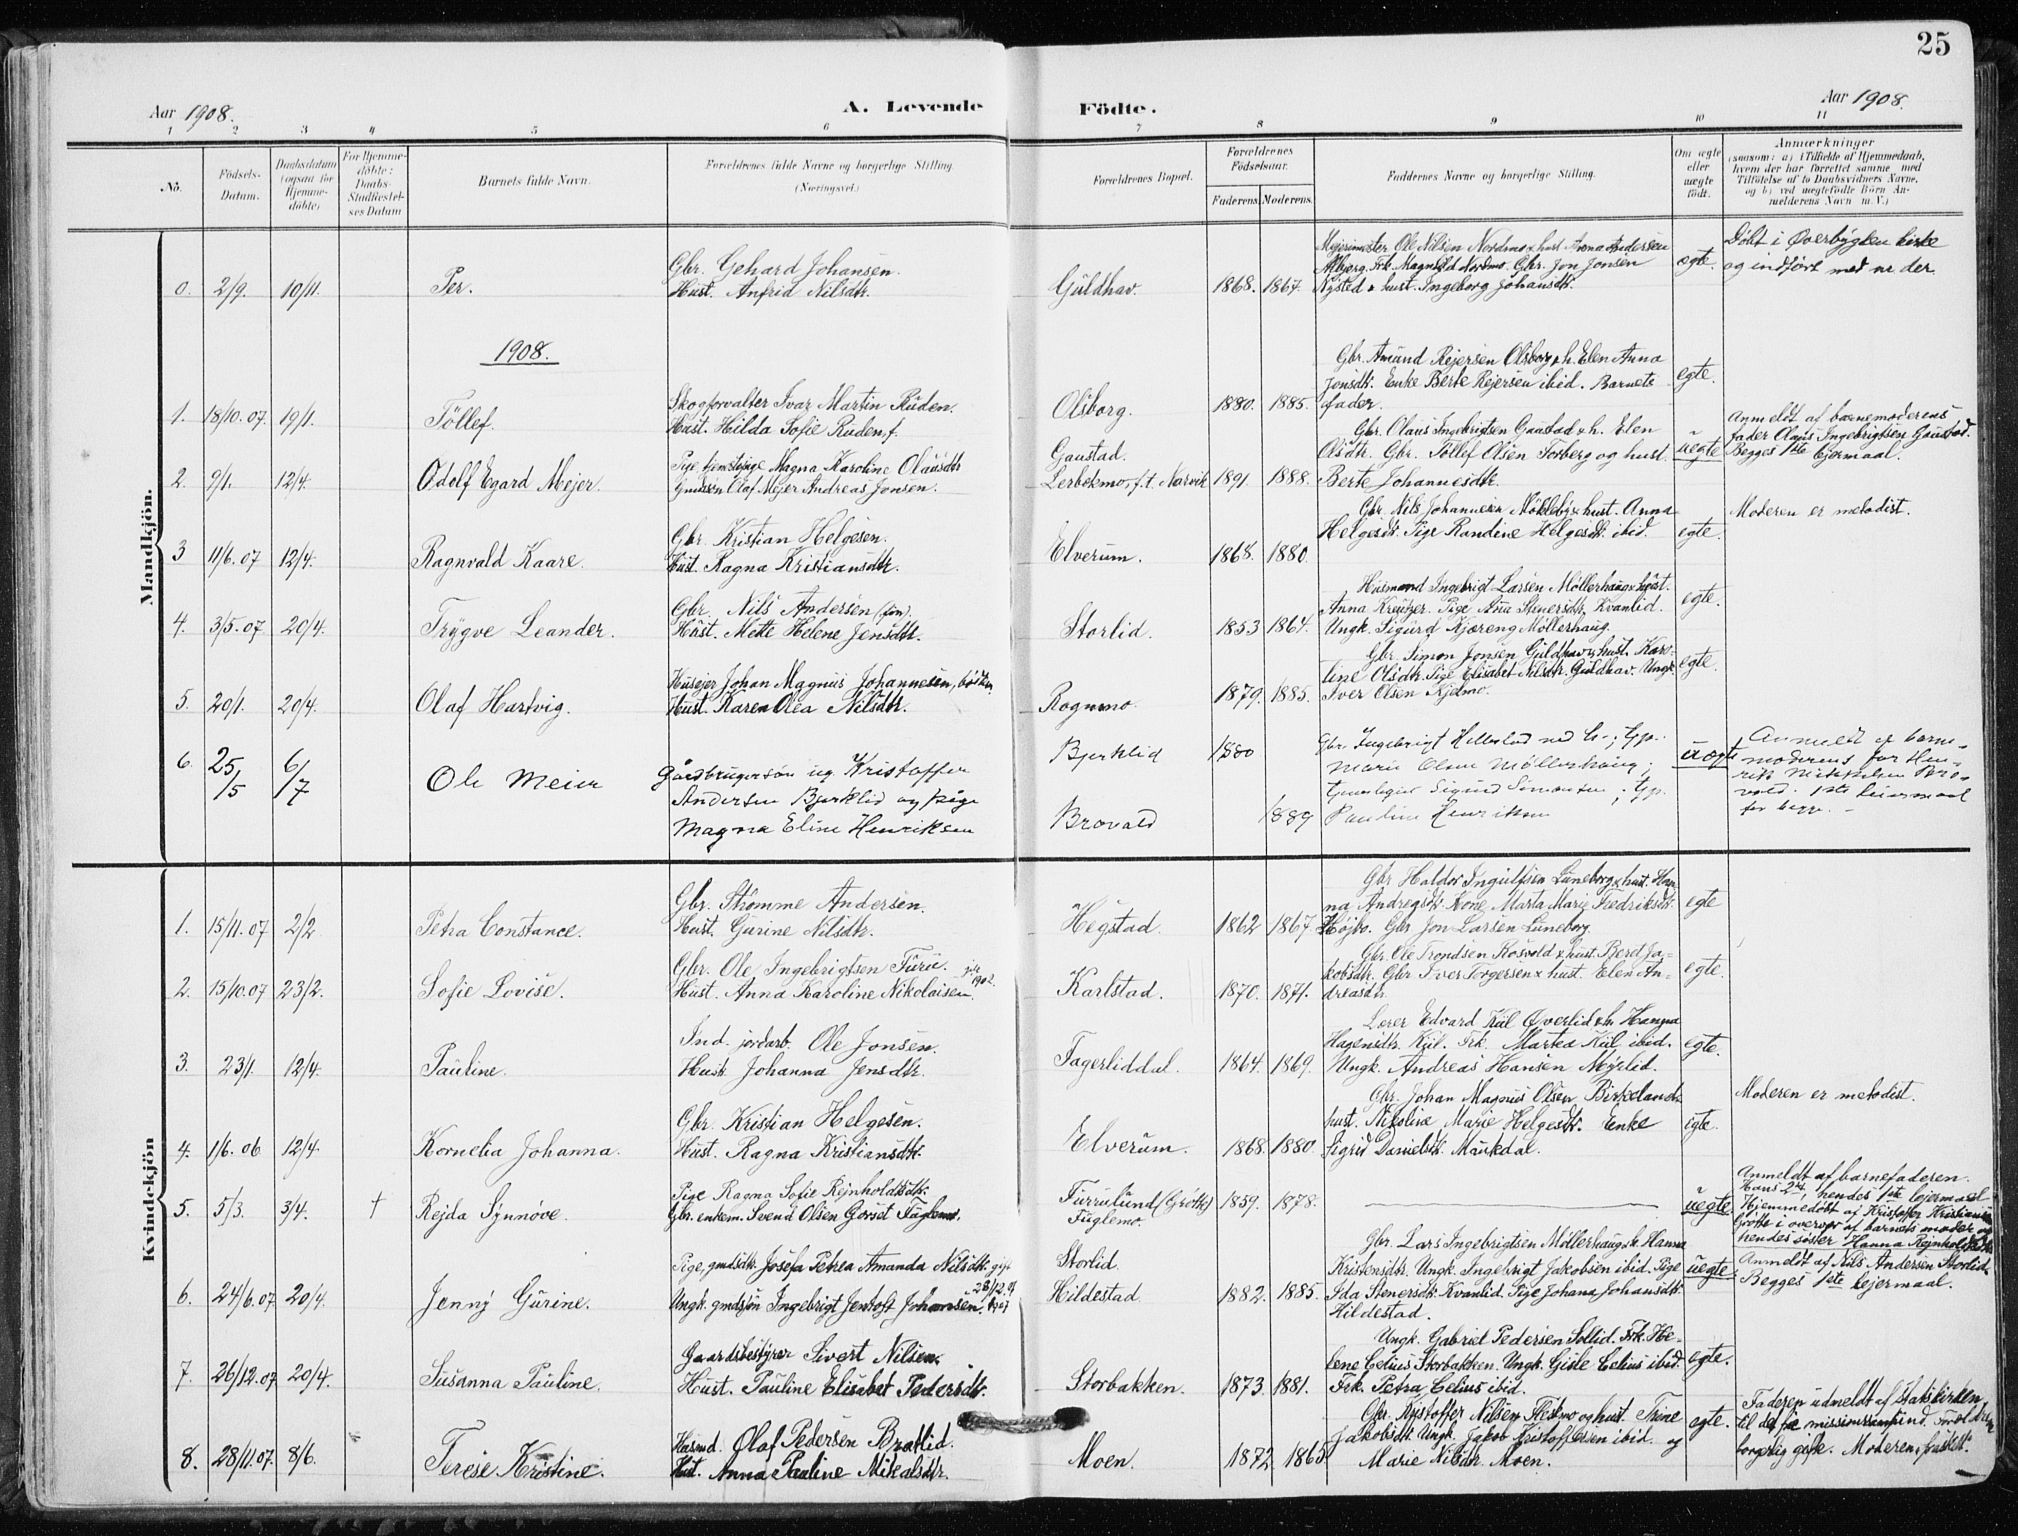 25
Aar 1908.
A. Levende
Födte.
Aar 1908.
1 2 3 4 5 6 7 8 9 10 11
No.
Födsels-Datum.
Daabsdatum (ogsaa for Hjemme-döbte)
For Hjemme-döbte: Daabs-Stadfæstel-ses Datum
Barnets fulde Navn.
Forældrenes fulde Navne og borgerlige Stilling.
(Næringsvei.)
Forældrenes Bopæl.
Forældrenes Födselsaar.
Faderens. Moderens.
Faddernes Navne og borgerlige Stilling.
Om ægte eller uægte födt.
Anmærkninger
(saasom: a) i Tilfælde af Hjemmedaab,
hvem der har forrettet samme med
Tilföielse af to Daabsvidners Navne,
og b) ved uegtefödte Börn An-
melderens Navn m. V.)
Mandkjön.
0. 2/9. 10/11. Per.
Gbr. Gehard Johansen.
Hust. Anfrid Nilsdtr.
Guldhav. 1868. 1867.
Mejerimester Ole Nilsen Nordmo & hust Anna Andersen
Frk. Magnhild Nordmo. Gbr. Jon Jonsen
Nysted & hust. Ingeborg Johansdtr.
ægte.
Döbt i Øverbygden kirke
og indført med nr der.
1908.
1. 18/10.07 19/1. Töllef.
Skogforvalter Ivar Martin Ruden.
Hust. Hilda Sofie Ruden, f.
Olsborg. 1880. 1885.
Gbr. Amund Rejersen Olsborg & h. Elen Anna
Jonsdtr. Enke Berte Rejersen ibid. Barnets
fader.
egte.
2. 9/1. 12/4. Odolf Egard Mejer.
Pige, Magna Karoline Olausdtr
Gmdsøn Olaf Mejer Andreas Jonsen.
Gaustad.
Lerbekmo, f.t. Narvik 1891. 1888.
Gbr. Olaus Ingebrigtsen Gaustad & h. Elen
Olsdtr. Gbr. Töllef Olsen Forberg og hust.
Berte Johannesdtr.
uegte
Anmeldt af barnemoderens
fader Olaus Ingebrigtsen Gaustad.
Begges 1ste lejermaal.
3 11/6.07 12/4. Ragnvald Kaare.
Gbr. Kristian Helgesen.
Hust. Ragna Kristiansdtr.
Elverum. 1868. 1880.
Gbr. Nils Johannesen Mökleby & hust. Anna
Helgesdtr. Pige Randine Helgesdtr. ibid.
egte.
Moderen er metodist.
4. 3/5.07 20/4. Trygve Leander.
Gbr. Nils Andersen
Hust. Mette Helene Jensdtr.
Storlid. 1853 1864.
Husmand Ingebrigt Larsen Møllerhaug & hust.
Anna Kreutzer. Pige Ana Stenersdtr. Kvanlid.
Ungk. Sigurd Kjæreng Møllerhaug.
egte.
5. 20/1. 20/4. Olaf Hartvig.
Husejer Johan Magnus Johannesen,
Hust. Karen Olea Nilsdtr.
Rognmo. 1879. 1885.
Gbr. Simon Jonsen Guldhav & hust. Karo-
line Olsdtr. Pige Elisabet Nilsdtr. Guldhav. Ungk.
Iver Olsen Kjelmo.
egte.
6. 25/5 6/7 Ole Meier
Gårdbrugersøn ug. Kristoffer
Andersen Bjerklid og pige
Magna Eline Henriksen
Bjerklid 1880
Brovold 1889
Gbr. Ingebrigt Hellestad
Marie Oline Møllerhaug;
Sigurd Simonsen;
Pauline Henriksen
uegte
Anmeldt af barne-
moderens far Hen-
rik Mikkelsen Bro-
vold. 1ste leiermaal
for begge.
Kvindekjön
1. 15/11.07 2/2. Petra Constance.
Gbr. Strømme Andersen.
Hust. Gurine Nilsdtr.
Hegstad. 1862 1867
Gbr Haldor Ingulfsen Luneborg & hust. Han-
na Andreasdtr. Kone Marta Marie Fredriksdtr.
Højbo. Gbr Jon Larsen Luneborg.
egte
2. 15/10.07 23/2. Sofie Lovise.
Gbr. Ole Ingebrigtsen Furu.
Hust. Anna Karoline Nikolaisen. 1902.
Karlstad. 1870. 1871.
Gbr. Ole Trondsen Rosvold & hust. Beret Ja-
kobsdtr. Gbr Iver Torgersen & hust. Elen An-
dreasdtr
egte.
3. 23/1. 12/4. Pauline.
Ind. jordarb. Ole Jonsen.
Hust Johanna Jensdtr.
Fagerliddal. 1864. 1869.
Lærer Edvard Kiil Øverlid & h. Hanna
Hagensdtr. Kiil. Frk. Marta Kiil ibid.
Ungk. Andreas Hansen Myrlid.
egte.
4. 1/6.06 12/4. Kornelia Johanna.
Gbr. Kristian Helgesen.
Hust. Ragna Kristiansdtr.
Elverum. 1868. 1880.
Gbr. Johan Magnus Olsen Birkeland &
hust. Nikoline Marie Helgesdtr. Enke
Sigrid Danielsdtr. Maukdal.
egte.
Moderen er metodist.
5. 5/3. 3/4. † Rejda Synnøve.
Pige Ragna Sofie Rejnholdtsdtr.
Gbr. enkem. Svend Olsen Gorset Fuglemo.
Furrulund (Grøtte)
Fuglemo. 1859. 1878.
uegte.
Anmeldt af barnefaderen.
Hans 2det, hendes 1ste lejermaal
Hjemmedöbt af Kristoffer Kristiansen
Grøtte i overvær af barnets moder og
hendes søster Hanna Rejnholdtsdtr
6. 24/6.07 20/4. Jenny Gurine.
Pige, gmdsdtr. Josefa Petrea Amanda Nilsdtr. gift
Ungk. gmdsøn Ingebrigt Jentoft Johansen. 28/12 1907
Storlid.
Hildestad. 1882. 1885.
Gbr. Lars Ingebrigtsen Møllerhaug & h. Hanna
Kristensdtr. Ungk. Ingebrigt Jakobsen ibid. Pige
Ida Stenersdtr. Kvanlid. Pige Johana Johansdtr.
Hildestad.
uegte.
Anmeldt af Nils Andersen Storlid.
Begges 1ste lejermaal.
7. 26/12.07 20/4. Susanna Pauline.
Gaardsbestyrer Sivert Nilsen.
Hust. Pauline Elisabet Pedersdtr.
Storbakken. 1873. 1881.
Ungk. Gabriel Pedersen Sollid. Frk. He-
lene Celius Storbakken. Ungk. Gisle Celius ibid.
Frk. Petra Celius ibid.
egte.
8. 28/11.07. 8/6. Terese Kristine.
Husmd. Olaf Pedersen Bratlid.
Hust. Anna Pauline Mikalsdtr.
Moen. 1872 1865
Gbr. Kristoffer Nilsen Flistmo og hust. Trine
Jakobsdtr. Ungk. Jakob Kristoffersen ibid. og
Marie Nilsdtr. Moen.
egte.
Faderen udmeldt af statskirken
til det frie missionssamfund. Forældrene
borgerlig gifte. Moderen i frikirk.